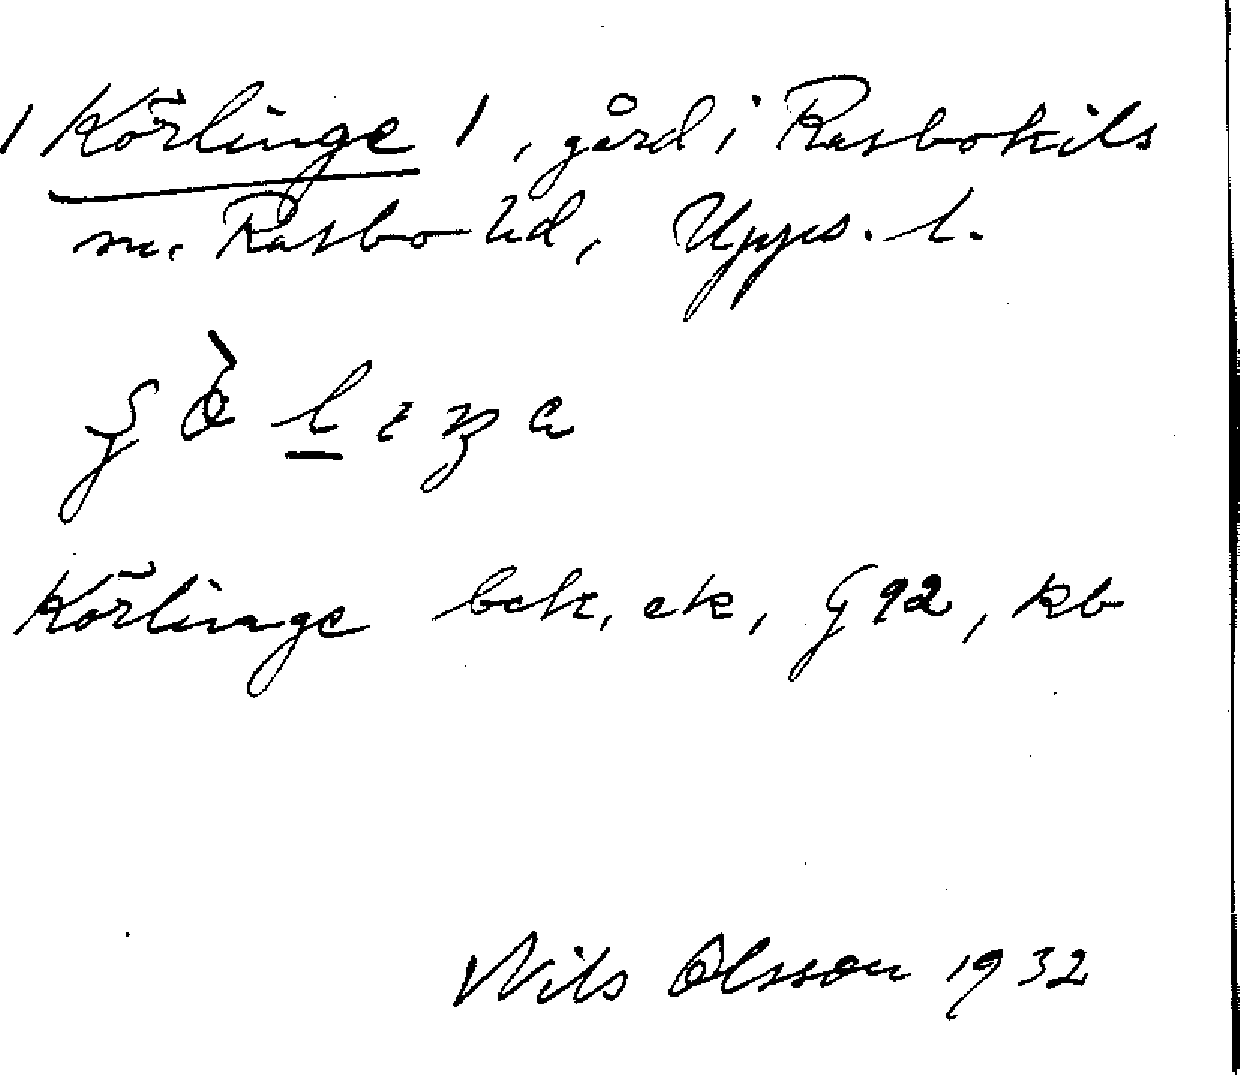 1 Körlinge 1, gård i Rasbokils
sn. Rasbo hd, Upps. l.
Körlinge bek, ek, G 92, kb
Nils Olsson 1932